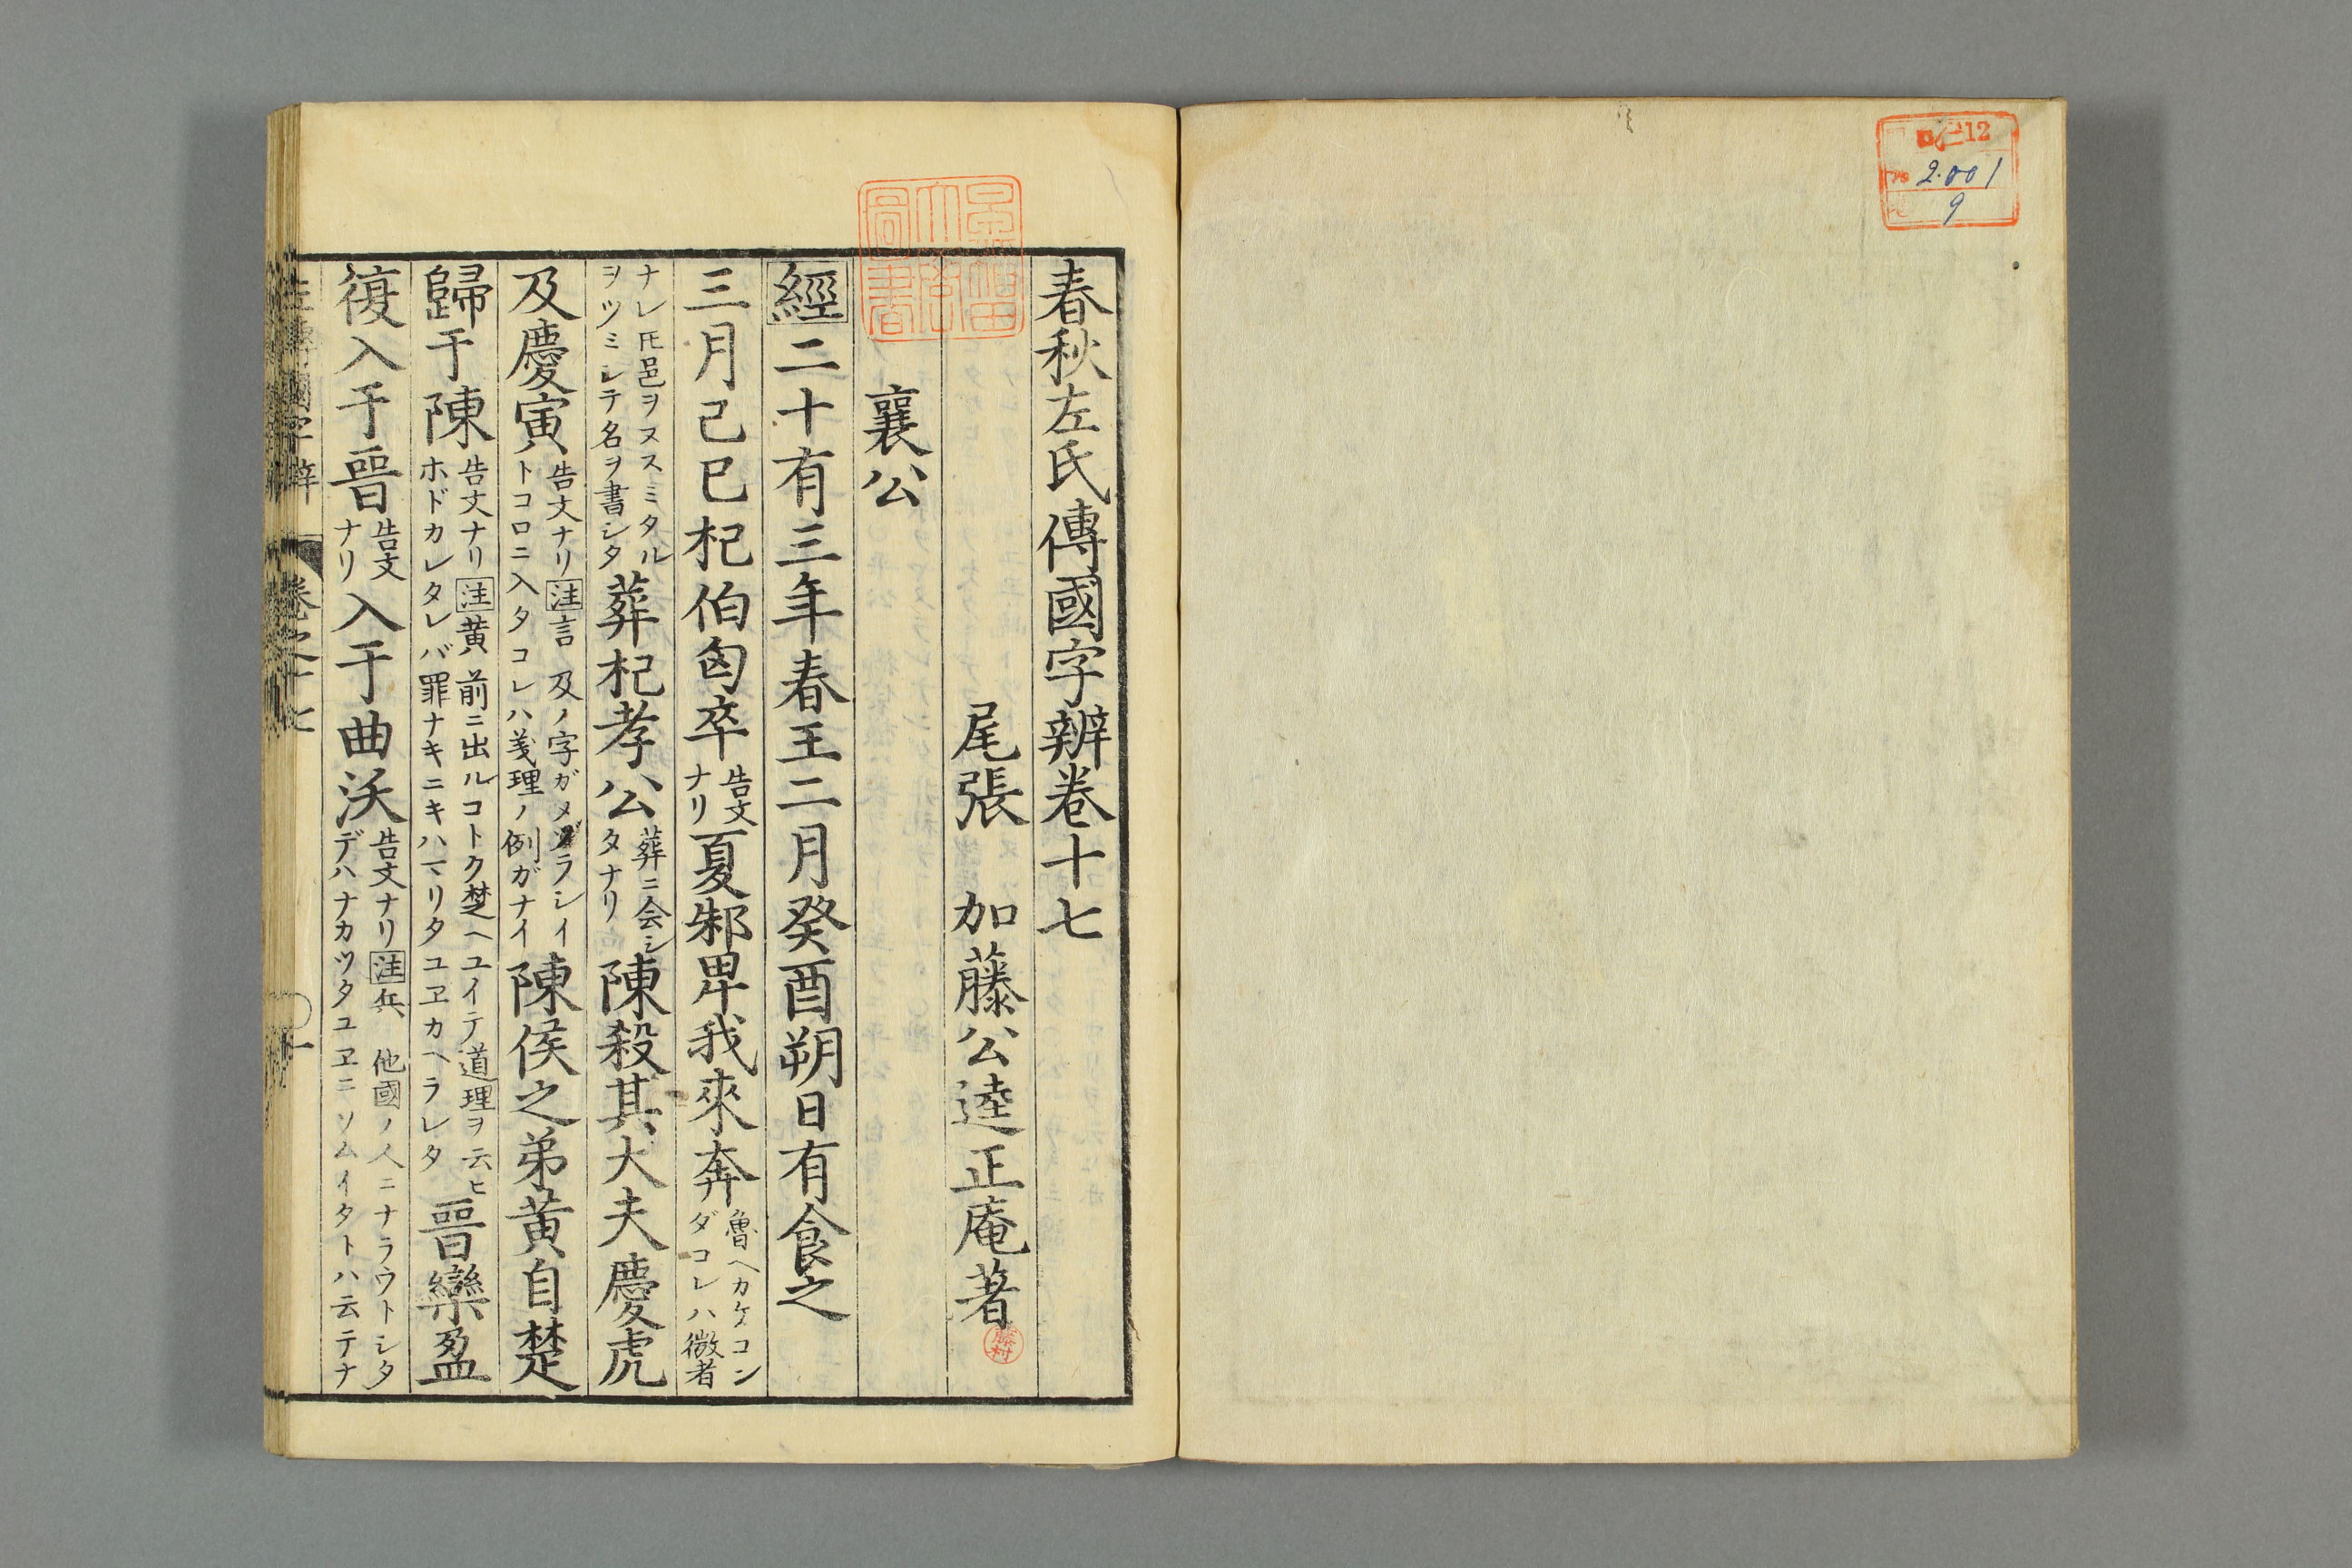 12
2.001
9
春秋左氏傳國字辨卷十七
尾張 加藤公逵正庵著
藤村
襄公
經二十有三年春王二月癸酉朔日有食之
三月己巳杞伯匄卒告文ナリ夏邾畀我來奔魯ヘカケコンダコレハ微者
ナレ𪜈邑ヲヌスミタルヲツミシテ名ヲ書シタ葬杞孝公葬ニ会シタナリ陳殺其大夫慶虎
及慶寅告文ナリ注言 及ノ字ガメヅラシイトコロニ入タコレハ義理ノ例ガナイ陳侯之弟黃自楚
歸于陳告文ナリ注黄 前ニ出ルコトク楚ヘユイテ道理ヲ云ヒホドカレタレバ罪ナキニキハマリタユヱカヘラレタ晉欒盈
復入于晉告文ナリ入于曲沃告文ナリ注兵 他國ノ人ニナラウトシタデハナカツタユヱニソムイタトハ云テナ